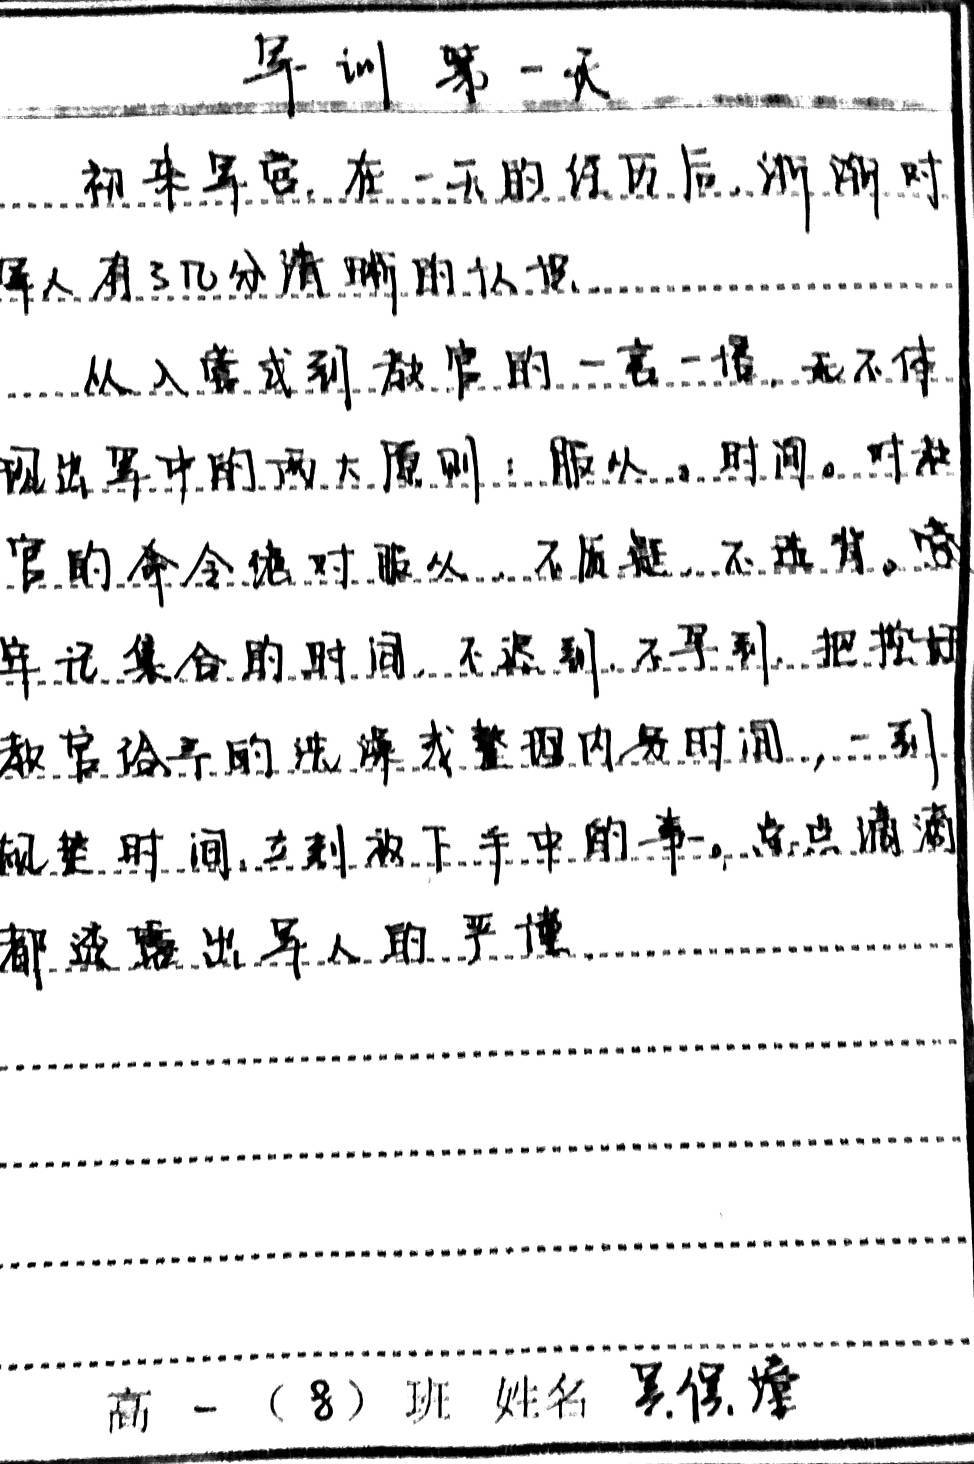 军训第一天
初来军营，在一天的经历后，渐渐对
军人有了几分清晰的认识。
从入营式到教官的一言一语，无不体
现出军中的两大原则：服从。时间。对教
官的命令绝对服从，不质疑，不违背。
牢记集合的时间，不迟到，不早到，把控好
教官给予的洗澡或整理内务时间，一到
规楚时间，立刻放下手中的事。点点滴滴
都透露出军人的严谨。
高一（8）班 姓名 吴保